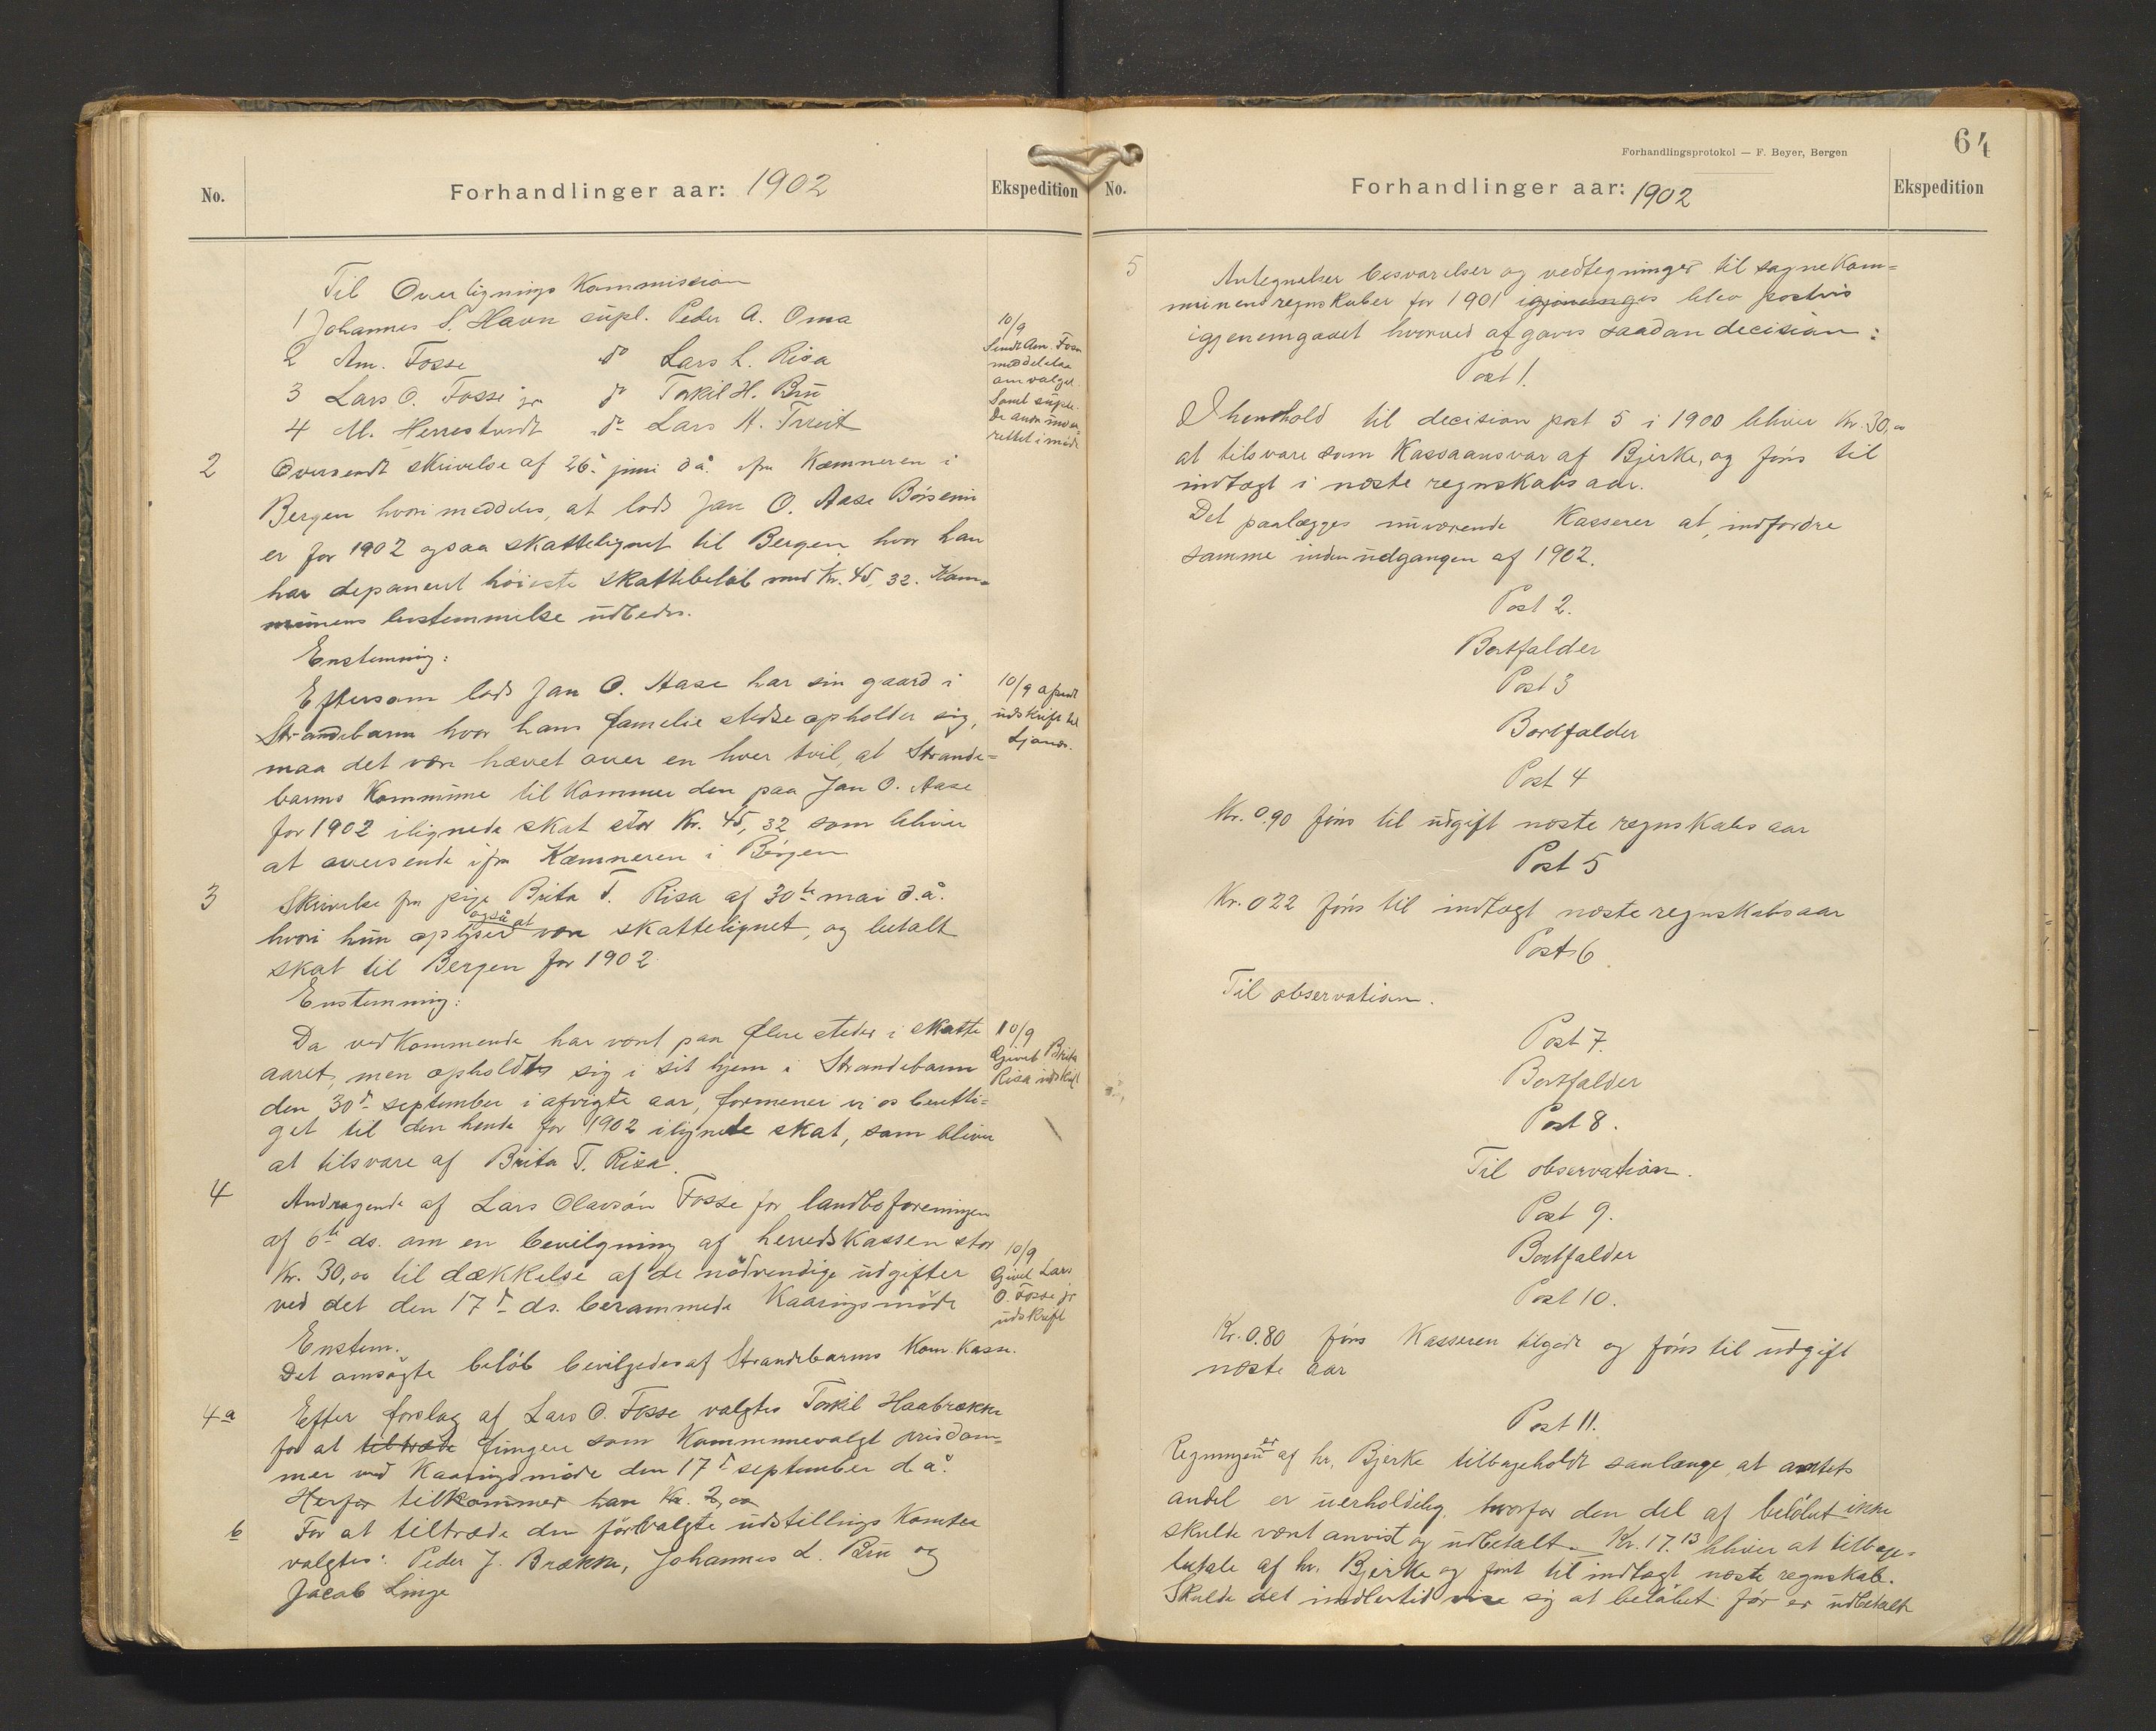 No.
Forhandlinger aar: 1902
Ekspedition
Til Overlignings Kommission
1 Johannes S. Havn supl. Peder A. Oma
2 Am. Fosse do Lars L. Risa
3 Lars O. Fosse jr do Torkil H. Bru
4 M. Herrestvedt do Lars H. Tveit
10/9
Sendt Am. Fosse
meddelelse
om valget.
Samt suple.
De andre under-
rettet i møde
2 Oversendt skrivelse af 26. juni d å. ifra Kæmneren i
Bergen hvori meddeles, at lods Jan O. Aase Børsenin
er for 1902 ogsaa skattelignet til Bergen, hvor han
har deponeret høieste skattebeløb med Kr. 45,32. Kom-
munens bestemmelse udbedes.
Enstemmig:
Eftersom lods Jan O. Aase har sin gaard i
Strandebarm hvor hans famelie stedse opholder sig,
maa det være hævet over en hver tvil, at Strande-
barms Kommune til kommer den paa Jan O. Aase
for 1902 ilignede skat stor Kr. 45,32 som bliver
at oversende ifra Kæmneren i Bergen
10/9 afsendt
udskrift til
3 Skrivelse fra pige Brita T. Risa af 30te mai d.å.
hvori hun oplyser også at være skattelignet, og betalt
skat til Bergen for 1902
Enstemmig:
Da vedkommende har været paa flere steder i skatte
aaret, men opholdts sig i sit hjem i Strandebarm
den 30te september i afvigte aar, formener vi os beretti-
get til den hende for 1902 ilignede skat, som bliver
at tilsvare af Brita T. Risa.
10/9
Givet Brita
Risa udskrift
4 Andragende af Lars Olavsøn Fosse for landboforeningen
af 6te ds. om en bevilgning af herredskassen stor
Kr. 30,00 til dækkelse af de nødvendige udgifter
ved det den 17de ds. berammede Kaaringsmøde
Enstem.
Det ansøgte beløb bevilgedes af Strandebarms Kom. Kasse.
10/9
Givet Lars
O. Fosse jr
udskrift
4a Efter forslag af Lars O. Fosse valgtes Torkil Haabrække
for at tiltræde fungere som Kommunevalgt prisdom-
mer ved Kaaringsmøde den 17de september d å.
Herfor tilkommer han Kr. 2,00
b For at tiltræde den førvalgte udstillings Komitee
valgtes: Peder J. Brække, Johannes L. Bru og
Jacob Linge
Forhandlingsprotokol — F. Beyer, Bergen
64
No.
Forhandlinger aar: 1902
Ekspedition
5 Antegnelser besvarelser og vedtegninger til sognekom-
munens regnskaber for 1901 igjennemges blev postvis
igjenemgaaet hvorved afgaves saadan decision:
Post 1.
I henhold til decision post 5 i 1900 bliver Kr. 30,00
at tilsvare som Kassaansvar af Bjerke, og føres til
indtægt i næste regnskabsaar.
Det paalægges nuværende Kasserer at indfordre
samme inden udgangen af 1902.
Post 2.
Bortfalder
Post 3
Bortfalder
Post 4
Kr. 0.90 føres til udgift næste regnskabsaar
Post 5
Kr. 022 føres til indtægt næste regnskabsaar
Post 6
Til observation.
Post 7.
Bortfalder
Post 8.
Til observation.
Post 9.
Bortfalder
Post 10.
Kr. 0.80 føres Kasseren tilgode og føres til udgift
næste aar
Post 11.
Regningen er af hr. Bjerke tilbageholdt saalænge, at amtets
andel er uerholdelig, hvorfor den del af beløbet ikke
skulde været anvist og udbetalt. Kr. 17.13 bliver at tilbage-
betale af hr. Bjerke og ført til indtægt næste regnskab.
Skulde det imidlertid vise sig at beløbet før er udbetalt